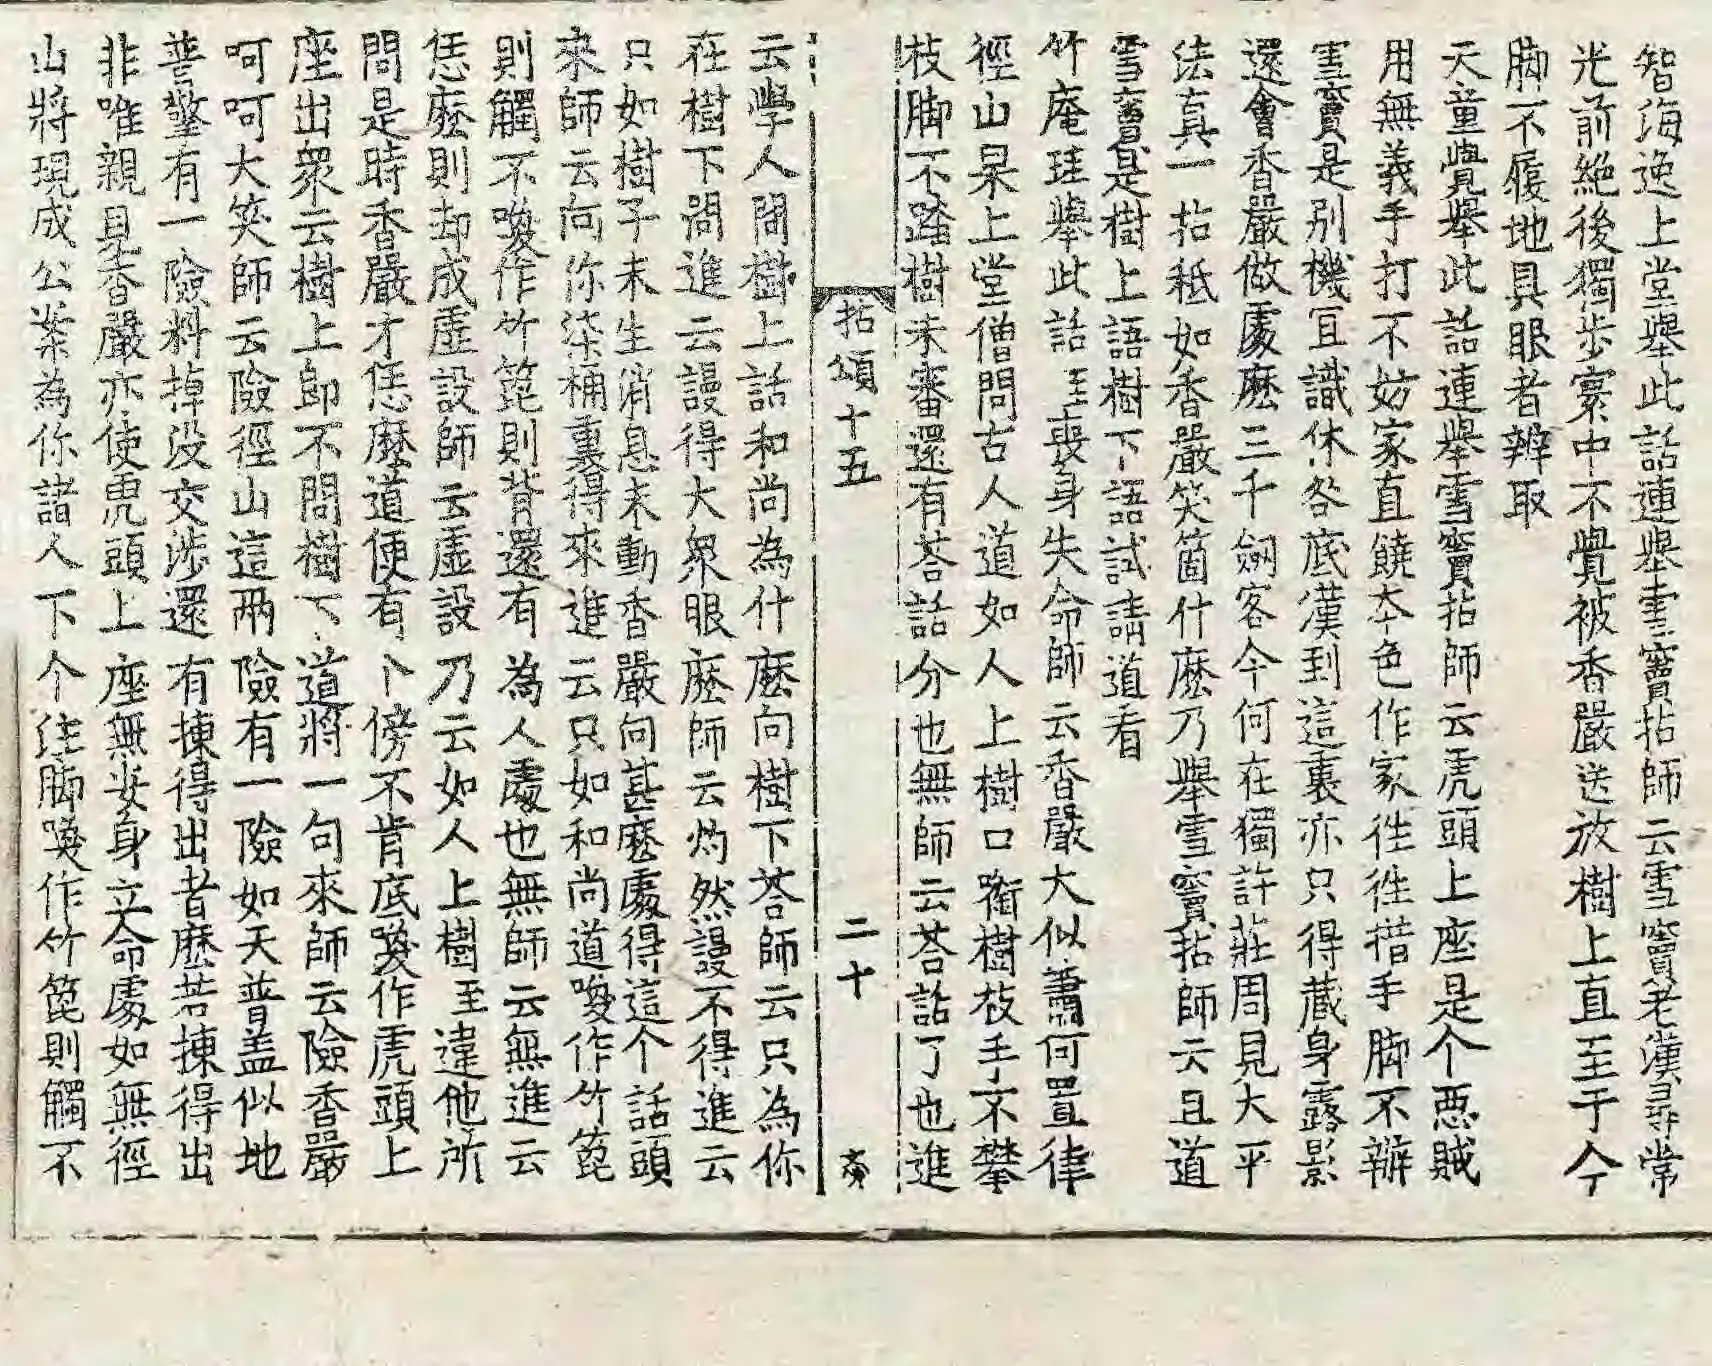 智海逸上堂舉此話連舉雪竇拈師云雪竇老漢尋常
光前絶後獨步寰中不覺被香嚴送放樹上直至于今
脚不履地具眼者辨取
天童覺舉此話連舉雪竇拈師云虎頭上座是个惡賊
用無義手打不妨家直饒夲色作家徃徃措手脚不辦
雪竇是别機冝識休咎底漢到這裏亦只得蔵身露影
還會香嚴做處麽三千劒客今何在獨許莊周見大平
法真一拈秪如香嚴笑箇什麽乃舉雪竇拈師云且道
雪竇是樹上語樹下語試請道看
竹庵珪舉此話至喪身失命師云香嚴大似蕭何置律
徑山杲上堂僧問古人道如人上樹口㘅樹枝手不攀
枝脚不踏樹未審還有荅話分也無師云荅話了也進
拈頌十五 二十
云學人問樹上話和尚為什麽向樹下荅師云只為你
在樹下問進云謾得大衆眼麽師云灼然謾不得進云
只如樹子未生消息未動香嚴向甚麽處得這个話頭
來師云向你柒桶裏得來進云只如和尚道喚作竹箆
則觸不喚作竹箆則背還有為人處也無師云無進云
恁麽則却成虛設師云虛設乃云如人上樹至違他所
問是時香嚴才恁麽道便有卜傍不肯底喚作虎頭上
座出衆云樹上即不問樹下道將一句來師云險香嚴
呵呵大笑師云險徑山這兩險有一險如天普盖似地
普擎有一險料掉没交涉還有揀得出者麽若揀得出
非唯親見香嚴亦使虎頭上座無安身立命處如無徑
山將現成公案為你諸人下个注脚喚作竹箆則觸不